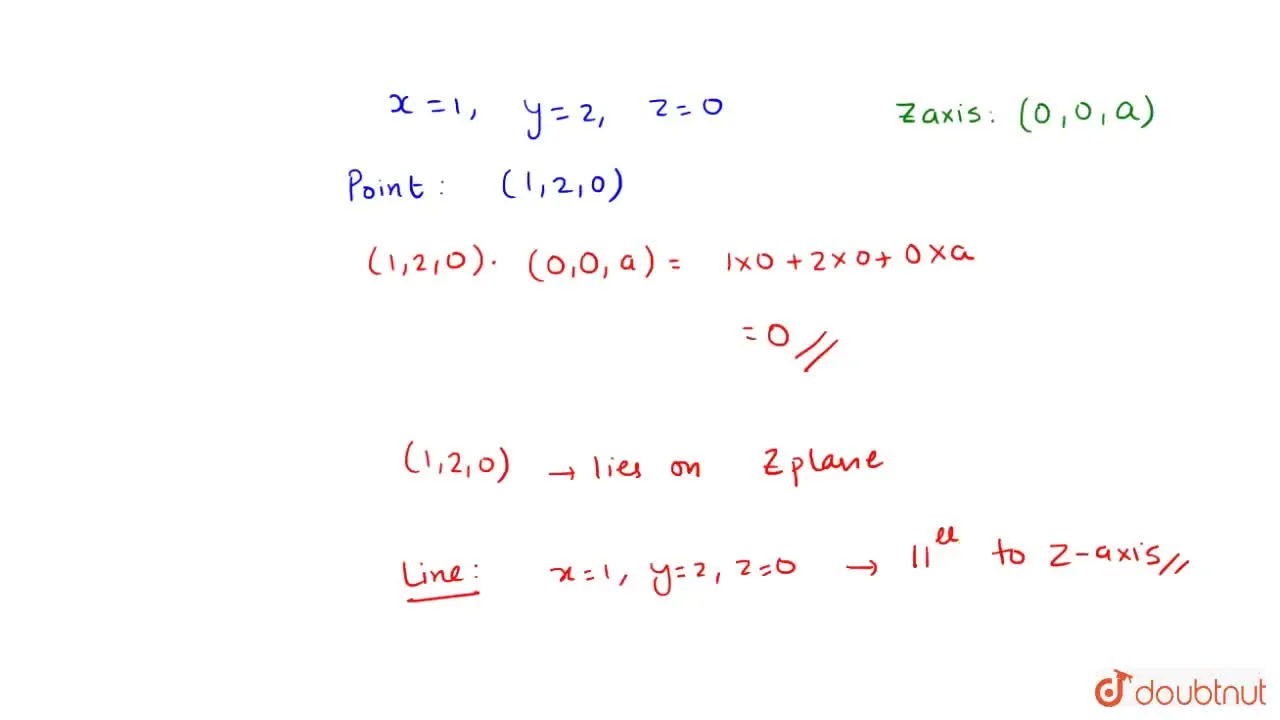 x=1, y=2, z=0
Z axis: (0,0,a)
Point: (1,2,0)
(1,2,0). (0,0,a) = 1×0 + 2×0 + 0×a
=0//
(1,2,0) → lies on Z plane
Line: x=1, y=2, z=0 → ||ll to Z-axis//
doubtnut